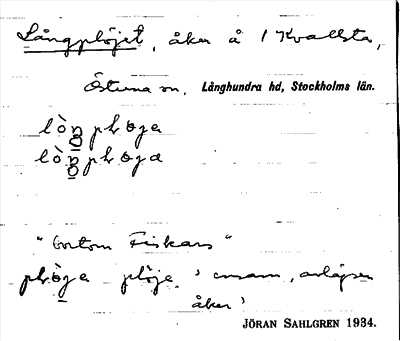 Långplöjet, åker å 1 Kvallsta,
Östuna sn, Långhundra hd, Stockholms län.
"bortom Fiskars"
plöje ' ensam, avlägsen
åker'
JÖRAN SAHLGREN 1934.